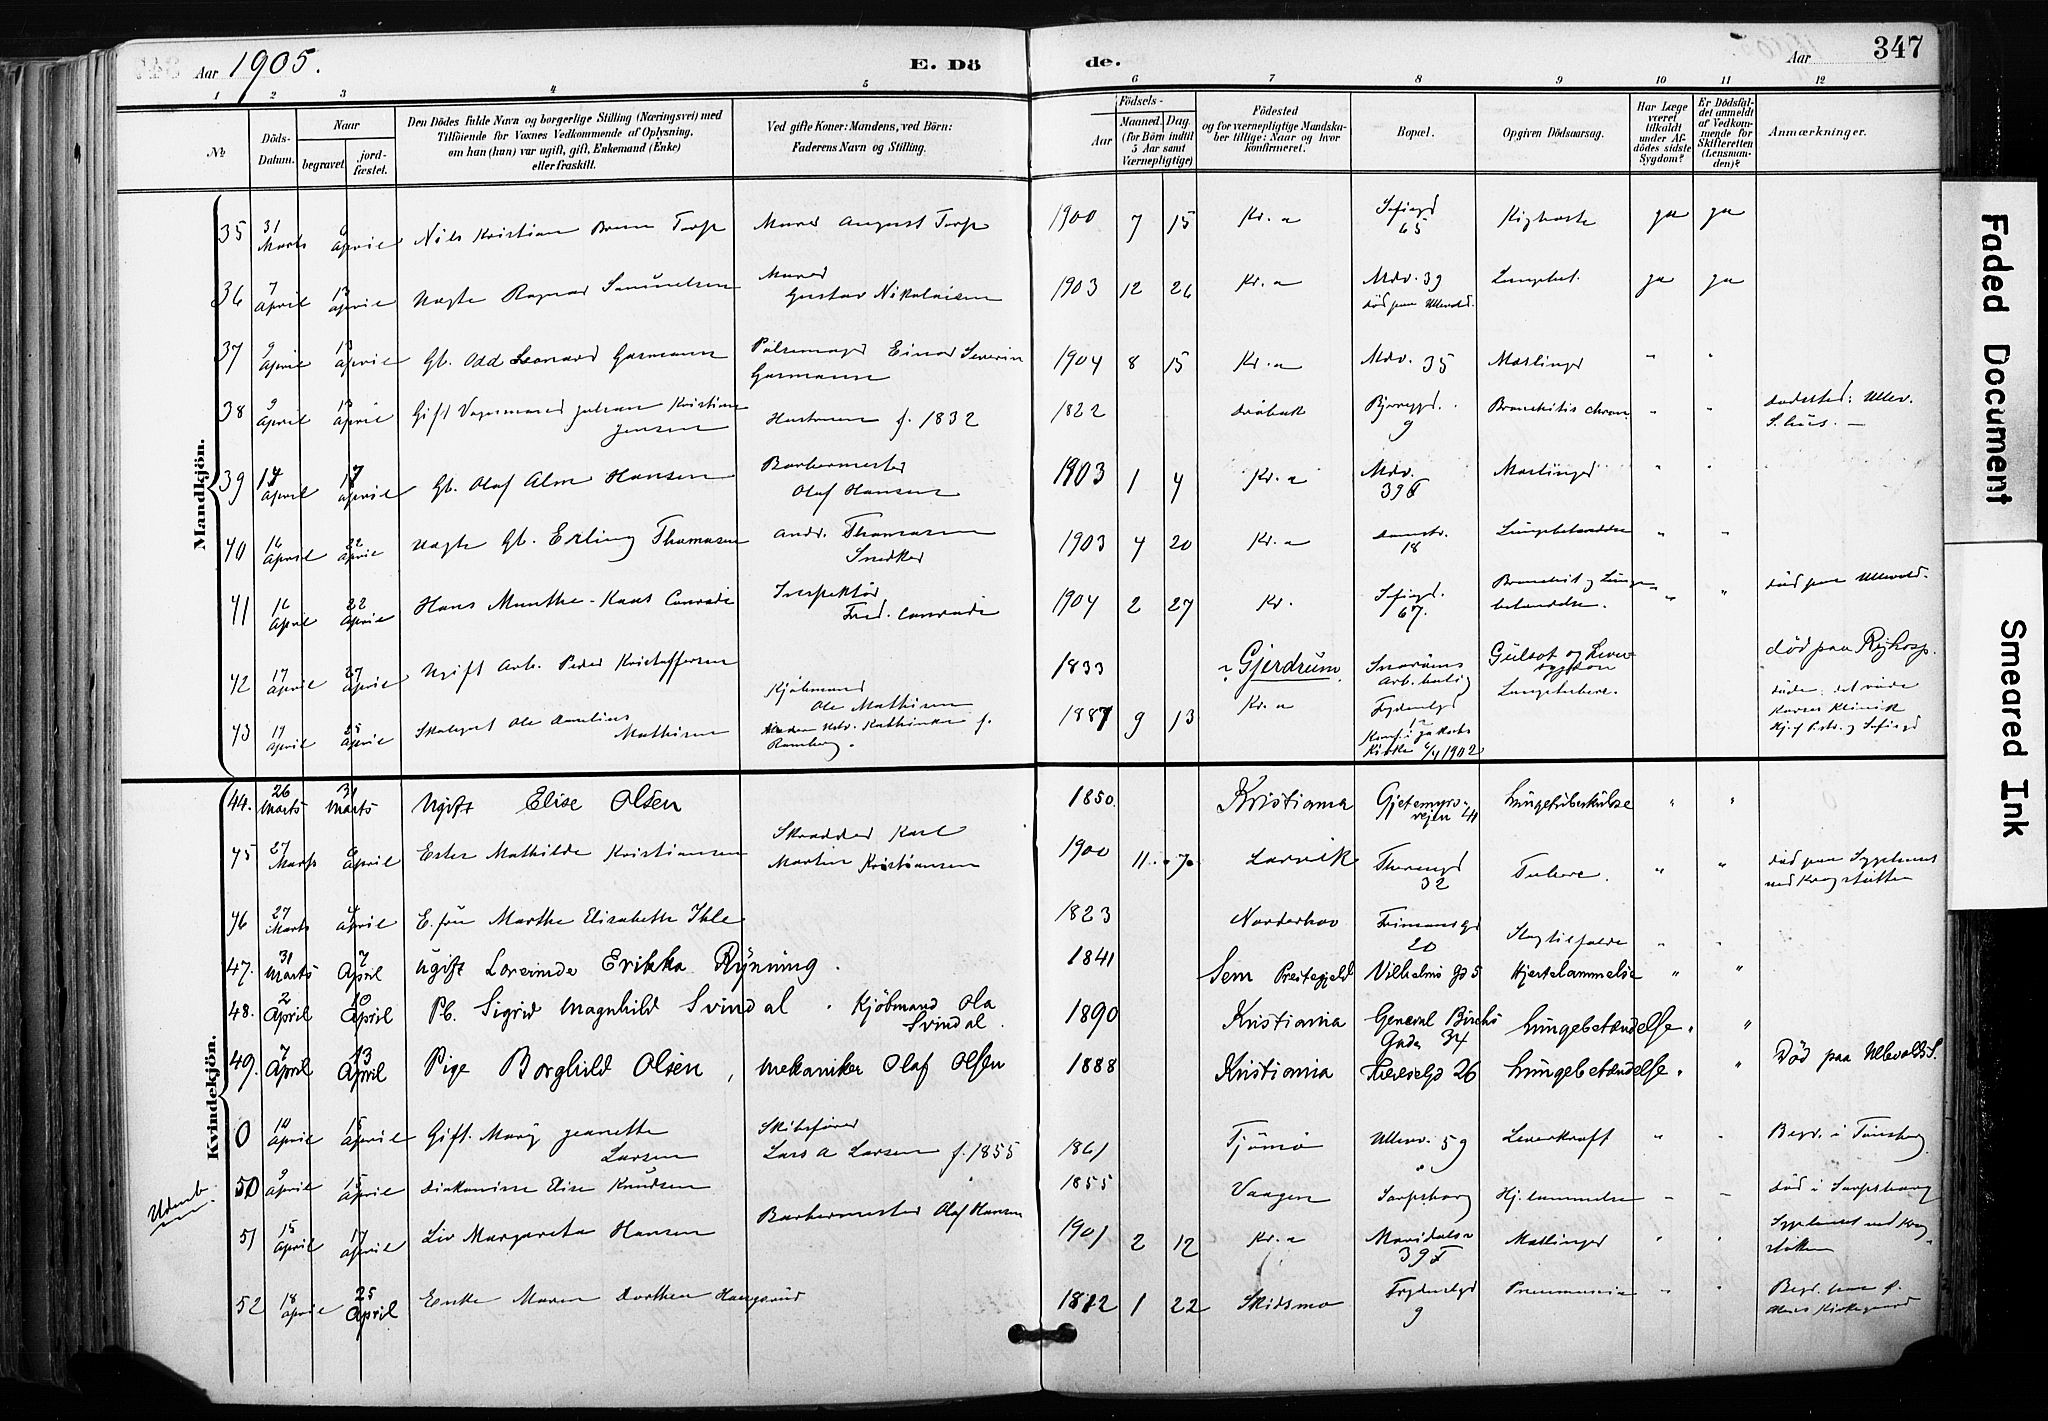 Aar 1905.
E. Dö
de.
Aar
347
1 2 3 4 5 6 7 8 9 10 11 12
№
Döds-Datum.
Naar
begravet
jord-fæstet.
Den Dödes fulde Navn og borgerlige Stilling (Næringsvei) med
Tilföiende for Voxnes Vedkommende af Oplysning,
om han (hun) var ugift, gift, Enkemand (Enke)
eller fraskilt.
Ved gifte Koner: Mandens, ved Börn:
Faderens Navn og Stilling.
Födsels-
Aar
Maaned. Dag.
(for Börn indtil
5 Aar samt
Værnepligtige)
Födested
og for værnepligtige Mandska-
ber tillige: Naar og hvor
konfirmeret.
Bopæl.
Opgiven Dödsaarsag.
Har Læge
været
tilkaldt
under Af-
dödes sidste
Sygdom?
Er Dödsfal-
det anmeldt
af Vedkom-
mende for
Skifteretten
(Lensman-
den)?
Anmærkninger.
Mandkjön.
35 31 Marts 6 April Nils Kristian Torp Murer August Torp 1900 7 15 Kr.a Sofiegd 65 Kighoste ja ja
36 7 April 13 April Uægte Ragnar Samuelsen Murer Gustav Nikolaisen 1903 12 26 Kr.a Mdv. 39 død paa Ullevold. Lungebet. ja ja
37 9 April 13 April Gb. Odd Leonard Gasmann Pølsemager Einar Severin Gasmann 1904 8 15 Kr.a Mdv. 35 Mæslinger " "
38 9 April 13 April Gift Vognmand Julian Kristian Jensen Hustruen f. 1832 1822 Drøbak Bjerregd. 9 Bronchitis chron. " " Dødssted: Ullev. S.hus. —
39 14 April 17 April Gb. Olaf Alm Hansen Barbermester Olaf Hansen 1903 1 4 Kr.a Mdv. 39 Mæslinger " "
40 16 April 22 April Uægte Gb. Erling Thomasen Andr. Thomasen Snedker 1903 4 20 Kr.a Damstr. 18 Lungebetændelse " "
41 16 April 22 April Hans Munthe-Kaas Conradi Inspektør Fred. Conradi 1904 2 27 Kr. Sofiegd. 67. Bronchit og Lungebetændelse. " " død paa Ullevold.
42 17 April 27 April Ugift Arb. Peder Kristoffersen 1833 Gjerdrum. Arb.bolig Gulsot og Leversygdom død paa Rigshosp.
43 17 April 25 April Skolegut Ole Mathisen Kjøbmand Ole Mathisen Kathinka f. Ramberg. 1887 9 13 Kr.a 12 Konf. i Jakobs Kirke 6/4 1902 Lungetuberc. døde det røde Korses Klinik
Kvindekjön.
44. 26 Marts 31 Marts Ugift Elise Olsen 1850. Kristiania Gjetemyrsveien 41 Lungetuberkulose " "
45 27 Marts 6 April Ester Mathilde Kristiansen Skrædder Karl Martin Kristiansen 1900 11 Larvik Thorengd 32 Tuberc. " " død paa Sygehuset ved Krogstøtten
46 27 Marts 4 April E. fru Marthe Elisabeth Ihle 1823 Norderhov 20 Slagtilfælde " "
47. 31 Marts 7 April Ugift Erikka Rynning. 1841 Sem Prestegjeld Vilhelms Gd 5 Hjertelammelse " "
48. 2 April 10 April Pb. Sigrid Magnhild Svindal. Kjöbmand Ola Svindal. 1890 Kristiania General Birchs Gade 34 Lungebetændelse " "
49. 7 April 13 April Pige Borghild Olsen, Mekaniker Olaf Olsen 1888 Kristiania Theresesgd 26 Lungebetændelse " " Död paa Ullevold S.
0 10 April 15 April Gift. Mary Jeanette Larsen Skibsfører Lars A Larsen f. 1855 1861 Tjømø Ullev. 59 Leverkræft " " Begr. i Tønsberg
Udenb.
50 9 April 15 April Diakonisse Elise Knudsen 1855 Vaagen Sarpsborg Hj.lammelse " " død i Sarpsborg
51 15 April 17 April Liv Margareta Hansen Barbermester Olaf Hansen 1901 2 12 Kr.a Maridalsv 39 Mæslinger " " Sygehuset ved Krogstøtten
52 18 April 25 April Enke Maren Dorthea Haugsrud 1812 1 22 Skidsmo Frydenlgd 9 Pneumonia " " Begr. paa
Faded Document
Smeared Ink